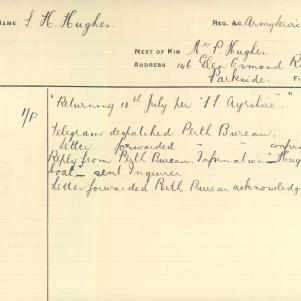 NAME S. H. Hughes. REG. &C. Army Servi
NEXT OF KIN Mrs P. Hughes.
ADDRESS 146 Glen Osmond R
Parkside. F
1/P "Returning 18th July per "SS. Ayrshire".
Telegram despatched Perth Bureau.
Letter forwarded " " confir
Reply from Perth Bureau. Information "Hug
boat" sent Inquirer
Letter forwarded Perth Bureau acknowledg